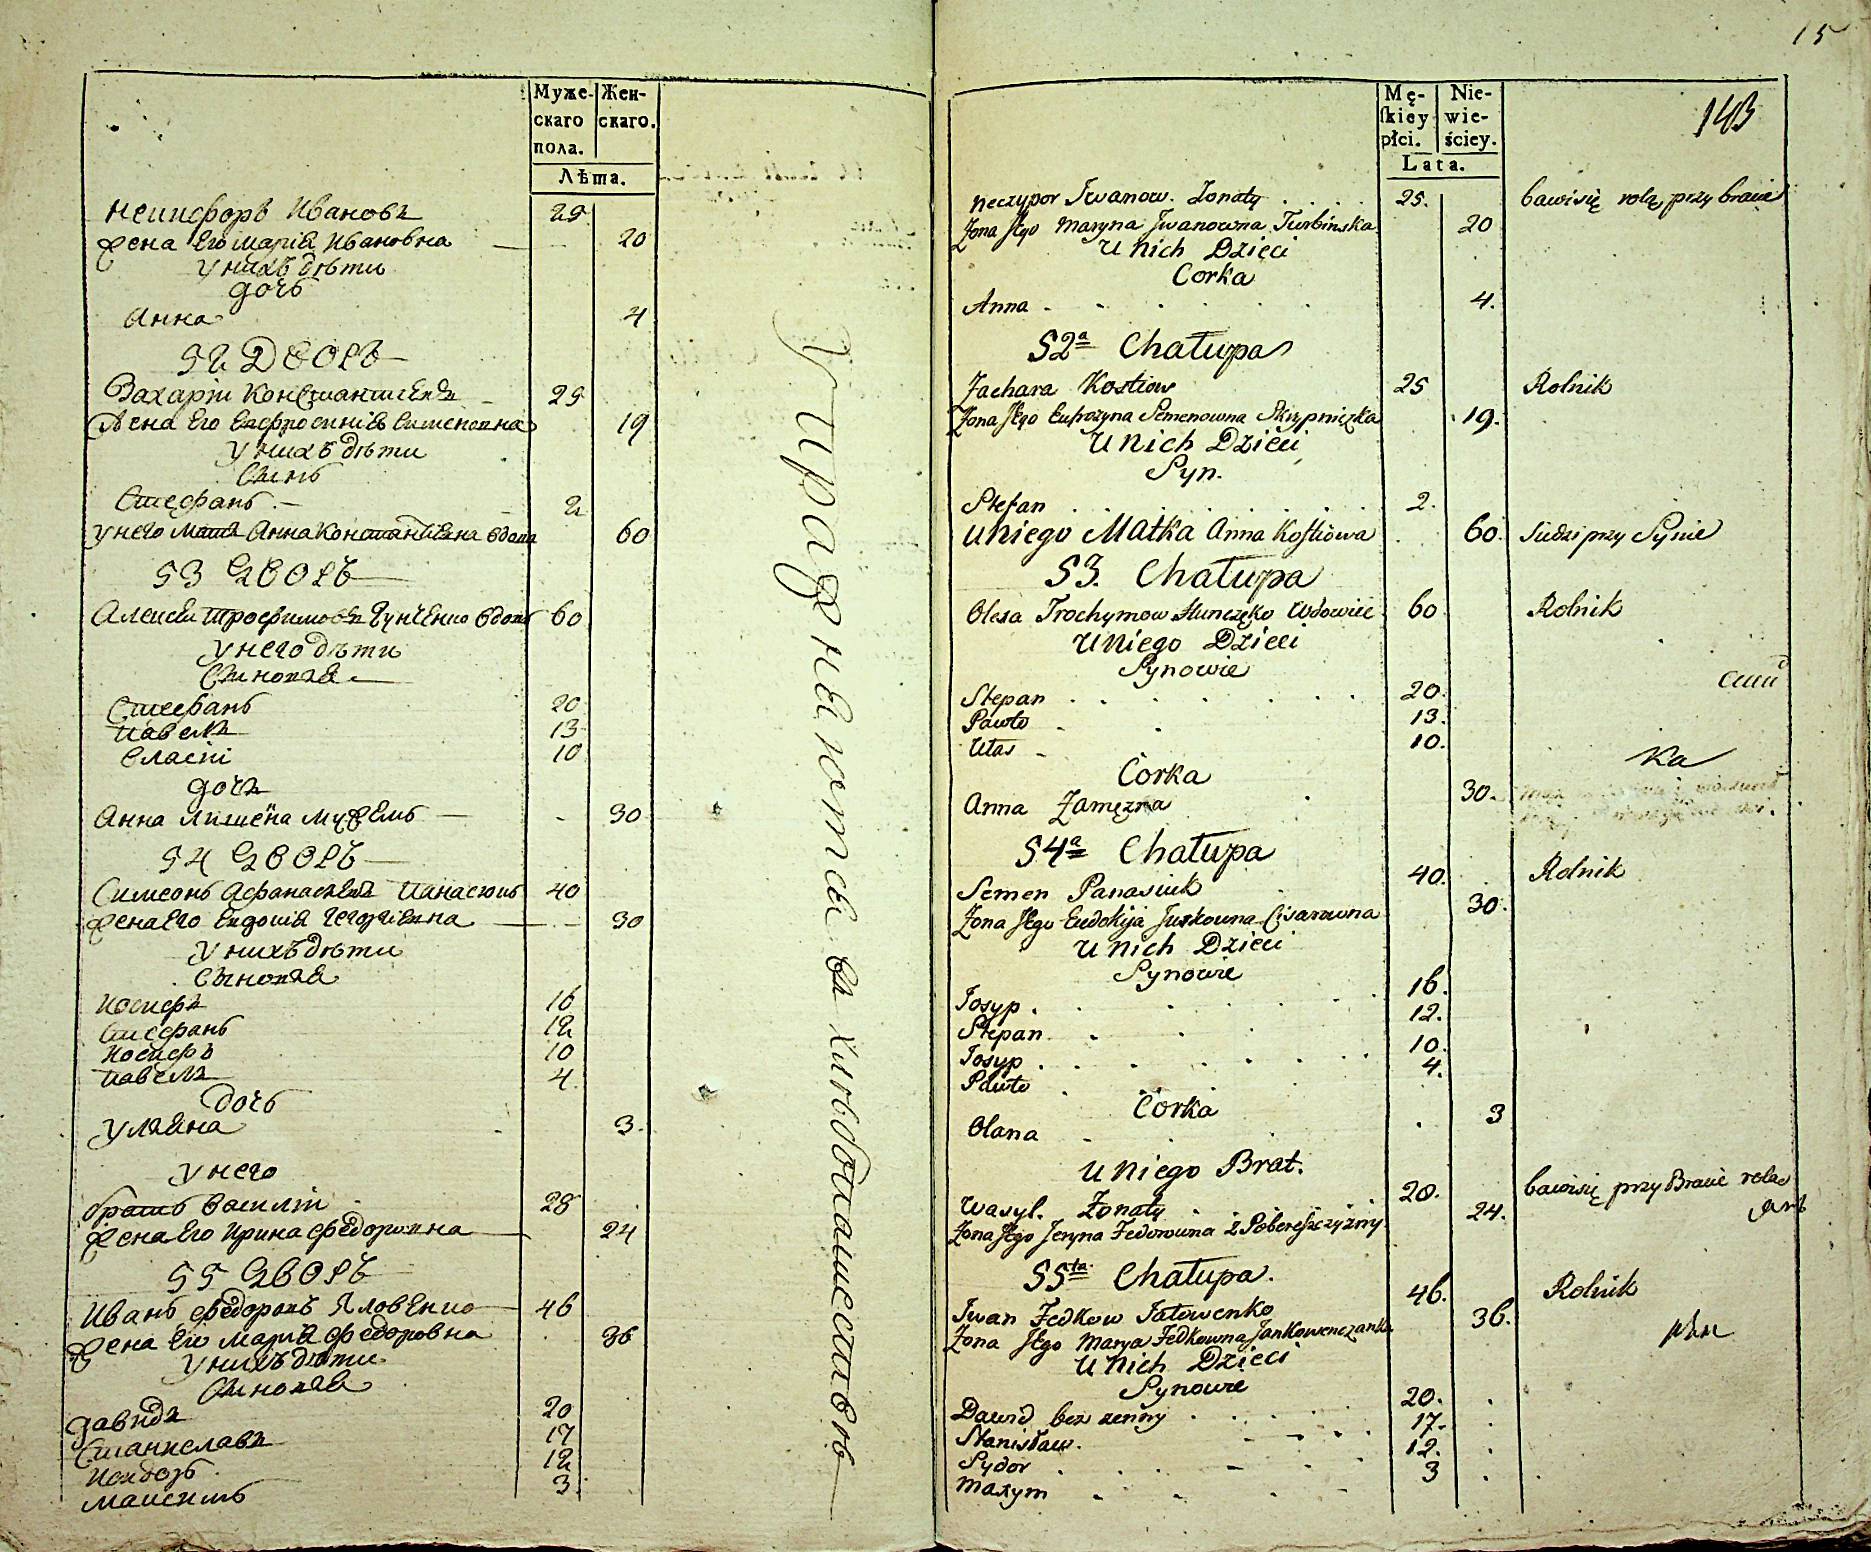 Муже-
скаго
пола.
Жен-
скаго.
Лѣта.
Неикифоръ Ивановъ 25
Жена Его Марія Ивановна 20
У нихъ дѣти
дочь
Анна 4
52 Дворъ
Захарій Константиевъ 25
Жена Его Евфросинія Симеоновна 19
У нихъ дѣти
Сынъ
Стефанъ 2
У него Мать Анна Константиевна вдова 60
53 Дворъ
Алексѣй Трофимовъ Гунченко вдовъ 60
У него дѣти
Сыновья
Стефанъ 20
Павелъ 13
Власій 10
дочь
Анна 30
54 Дворъ
Симеонъ Афанасіевъ Панасюкъ 40
Жена Его Евдокія Георгіевна 30
У нихъ дѣти
Сыновья
Иосифъ 16
Стефанъ 12
Иосифъ 10
Павелъ 4
дочь
Уляна 3
У него
братъ Василій 28
Жена Его Ирина Федоровна 24
55 Дворъ
Иванъ Федоровъ Яловенко 46
Жена Его Марія Федоровна 36
У нихъ дѣти
Сыновья
Давидъ 20
Станиславъ 17
Исидоръ 12
Максимъ 3
15
143
Mę-
skiey
płci.
Nie-
wie-
ściey.
Lata.
Neczypor Iwanow. Żonaty 25. bawi się rolą przy bracie
Żona Jego Maryna Iwanowna Turbińska 20
U Nich Dzieci
Corka
Anna 4.
52a Chałupa
Zachara Kostiow 25 Rolnik
Żona Jego Eufrozyna Semenowna Skrypniczka 19.
U Nich Dzieci
Syn.
Stefan 2.
U niego Matka Anna Kostiowa 60. Siedzi przy Synie
53. Chałupa
Olexa Trochymow Hunczęko Wdowiec 60 Rolnik
U Niego Dzieci
Synowie
Stepan 20.
Pawło 13.
Ułas 10.
Corka
Anna Zamęzna 30.
54a Chałupa
Semen Panasiuk 40. Rolnik
Żona Jego Eudokija Jurkowna Cisarowna 30.
U Nich Dzieci
Synowie
Josyp. 16.
Stepan 12.
Josyp 10.
Pawło 4.
Corka
Olana 3
U niego Brat.
Wasyl. Żonaty 28. bawi się przy Bracie rolą
Żona Jego Jeryna Fedorowna z Pobereszczyzny 24.
55ta Chałupa.
Iwan Fedkow Jałowenko 46. Rolnik
Żona Jego Marya Fedkowna Jankowenczanka 36.
U Nich Dzieci
Synowie
Dawid bez zenny 20.
Stanisław. 17.
Sydor 12.
Maxym 3